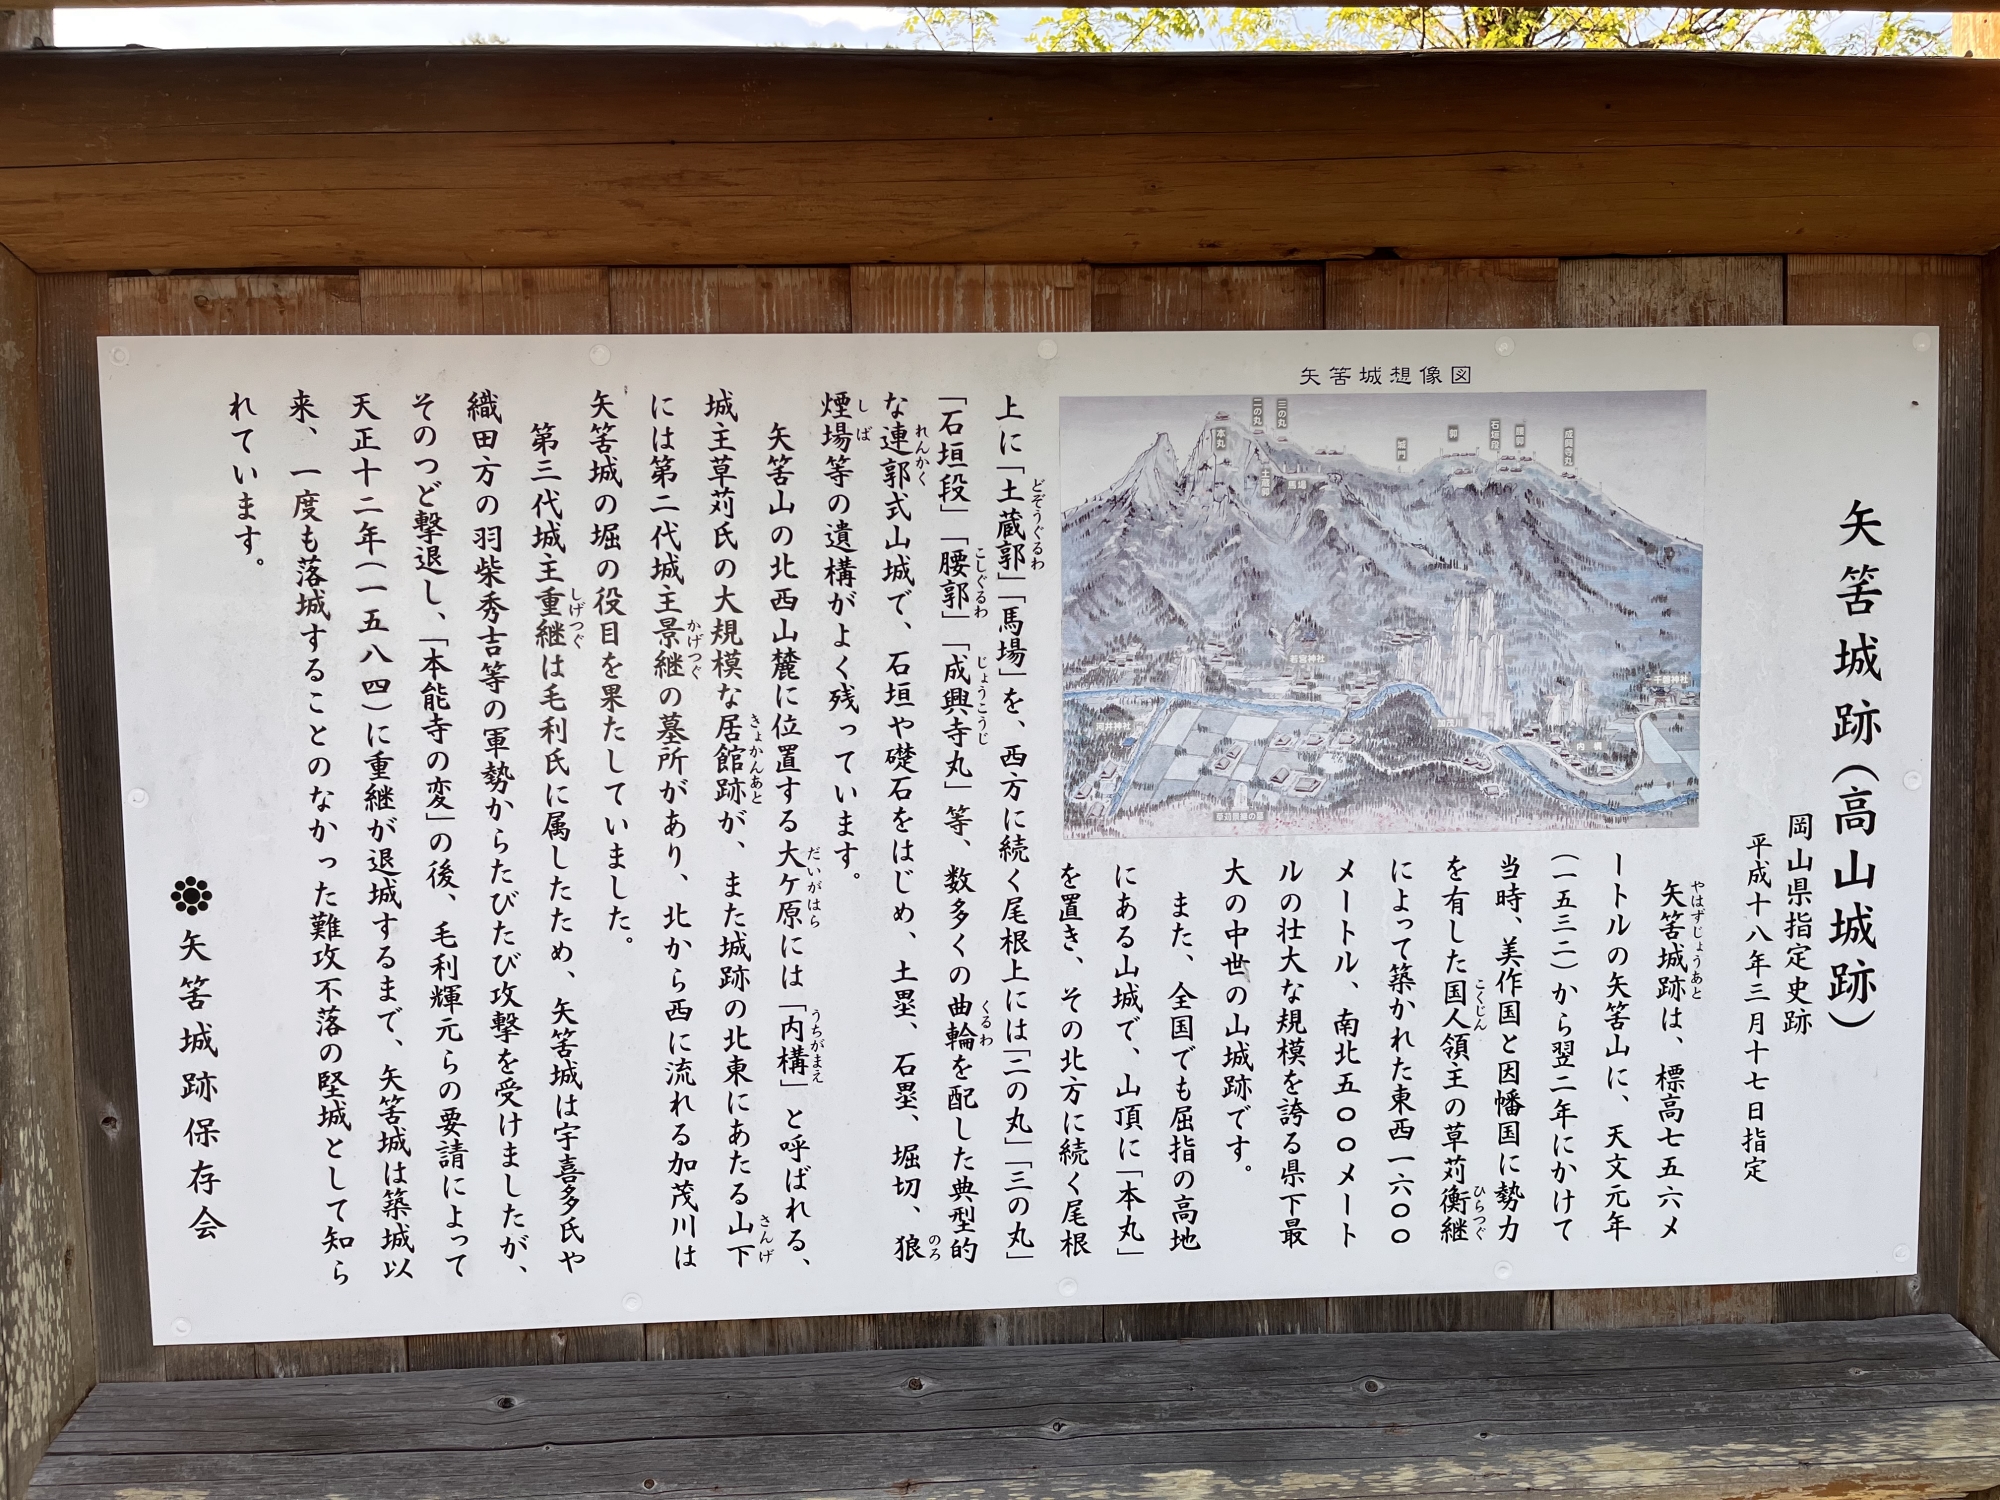 矢筈城跡（高山城跡）
岡山県指定史跡
平成十八年三月十七日指定
矢筈城想像図
本丸
二の丸
三の丸
土蔵郭
馬場
城門
郭
石垣段
腰郭
成興寺丸
若宮神社
千磐神社
河井神社
加茂川
内構
草苅景継の墓
やはずじょうあと
矢筈城跡は、標高七五六メ
ートルの矢筈山に、天文元年
（一五三二）から翌二年にかけて
当時、美作国と因幡国に勢力
を有した国人領主の草苅衡継
こくじん
ひらつぐ
によって築かれた東西一六〇〇
メートル、南北五〇〇メート
ルの壮大な規模を誇る県下最
大の中世の山城跡です。
また、全国でも屈指の高地
にある山城で、山頂に「本丸」
を置き、その北方に続く尾根
上に「土蔵郭」「馬場」を、西方に続く尾根上には「二の丸」「三の丸」
どぞうぐるわ
「石垣段」「腰郭」「成興寺丸」等、数多くの曲輪を配した典型的
こしぐるわ
じょうこうじ
くるわ
な連郭式山城で、石垣や礎石をはじめ、土塁、石塁、堀切、狼
れんかく
のろ
煙場等の遺構がよく残っています。
しば
矢筈山の北西山麓に位置する大ケ原には「内構」と呼ばれる、
だいがはら
うちがまえ
城主草苅氏の大規模な居館跡が、また城跡の北東にあたる山下
きょかんあと
さんげ
には第二代城主景継の墓所があり、北から西に流れる加茂川は
かげつぐ
矢筈城の堀の役目を果たしていました。
第三代城主重継は毛利氏に属したため、矢筈城は宇喜多氏や
しげつぐ
織田方の羽柴秀吉等の軍勢からたびたび攻撃を受けましたが、
そのつど撃退し、「本能寺の変」の後、毛利輝元らの要請によって
天正十二年（一五八四）に重継が退城するまで、矢筈城は築城以
来、一度も落城することのなかった難攻不落の堅城として知ら
れています。
矢筈城跡保存会